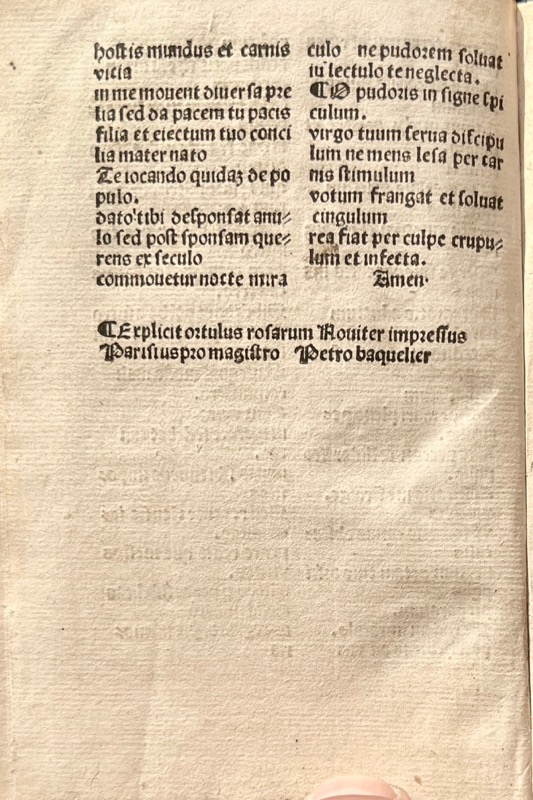 hostis mundus et carnis
vicia
in me mouent diuersa pre
lia sed da pacem tu pacis
filia et eiectum tuo conci
lia mater nato
Te iocando quidaʒ de po
pulo.
dato tibi desponsat anu⸗
lo sed post sponsam que⸗
rens ex seculo
commouetur nocte mira
culo ne pudorem soluat
iu lectulo te neglecta.
¶O pudoris in signe spi
culum.
virgo tuum serua discipu
lum ne mens lesa per car
nis stimulum
votum frangat et soluat
cingulum
rea fiat per culpe crupu⸗
lum et infecta.
Amen.
¶Explicit ortulus rosarum Nouiter impressus
Parisius pro magistro Petro baquelier